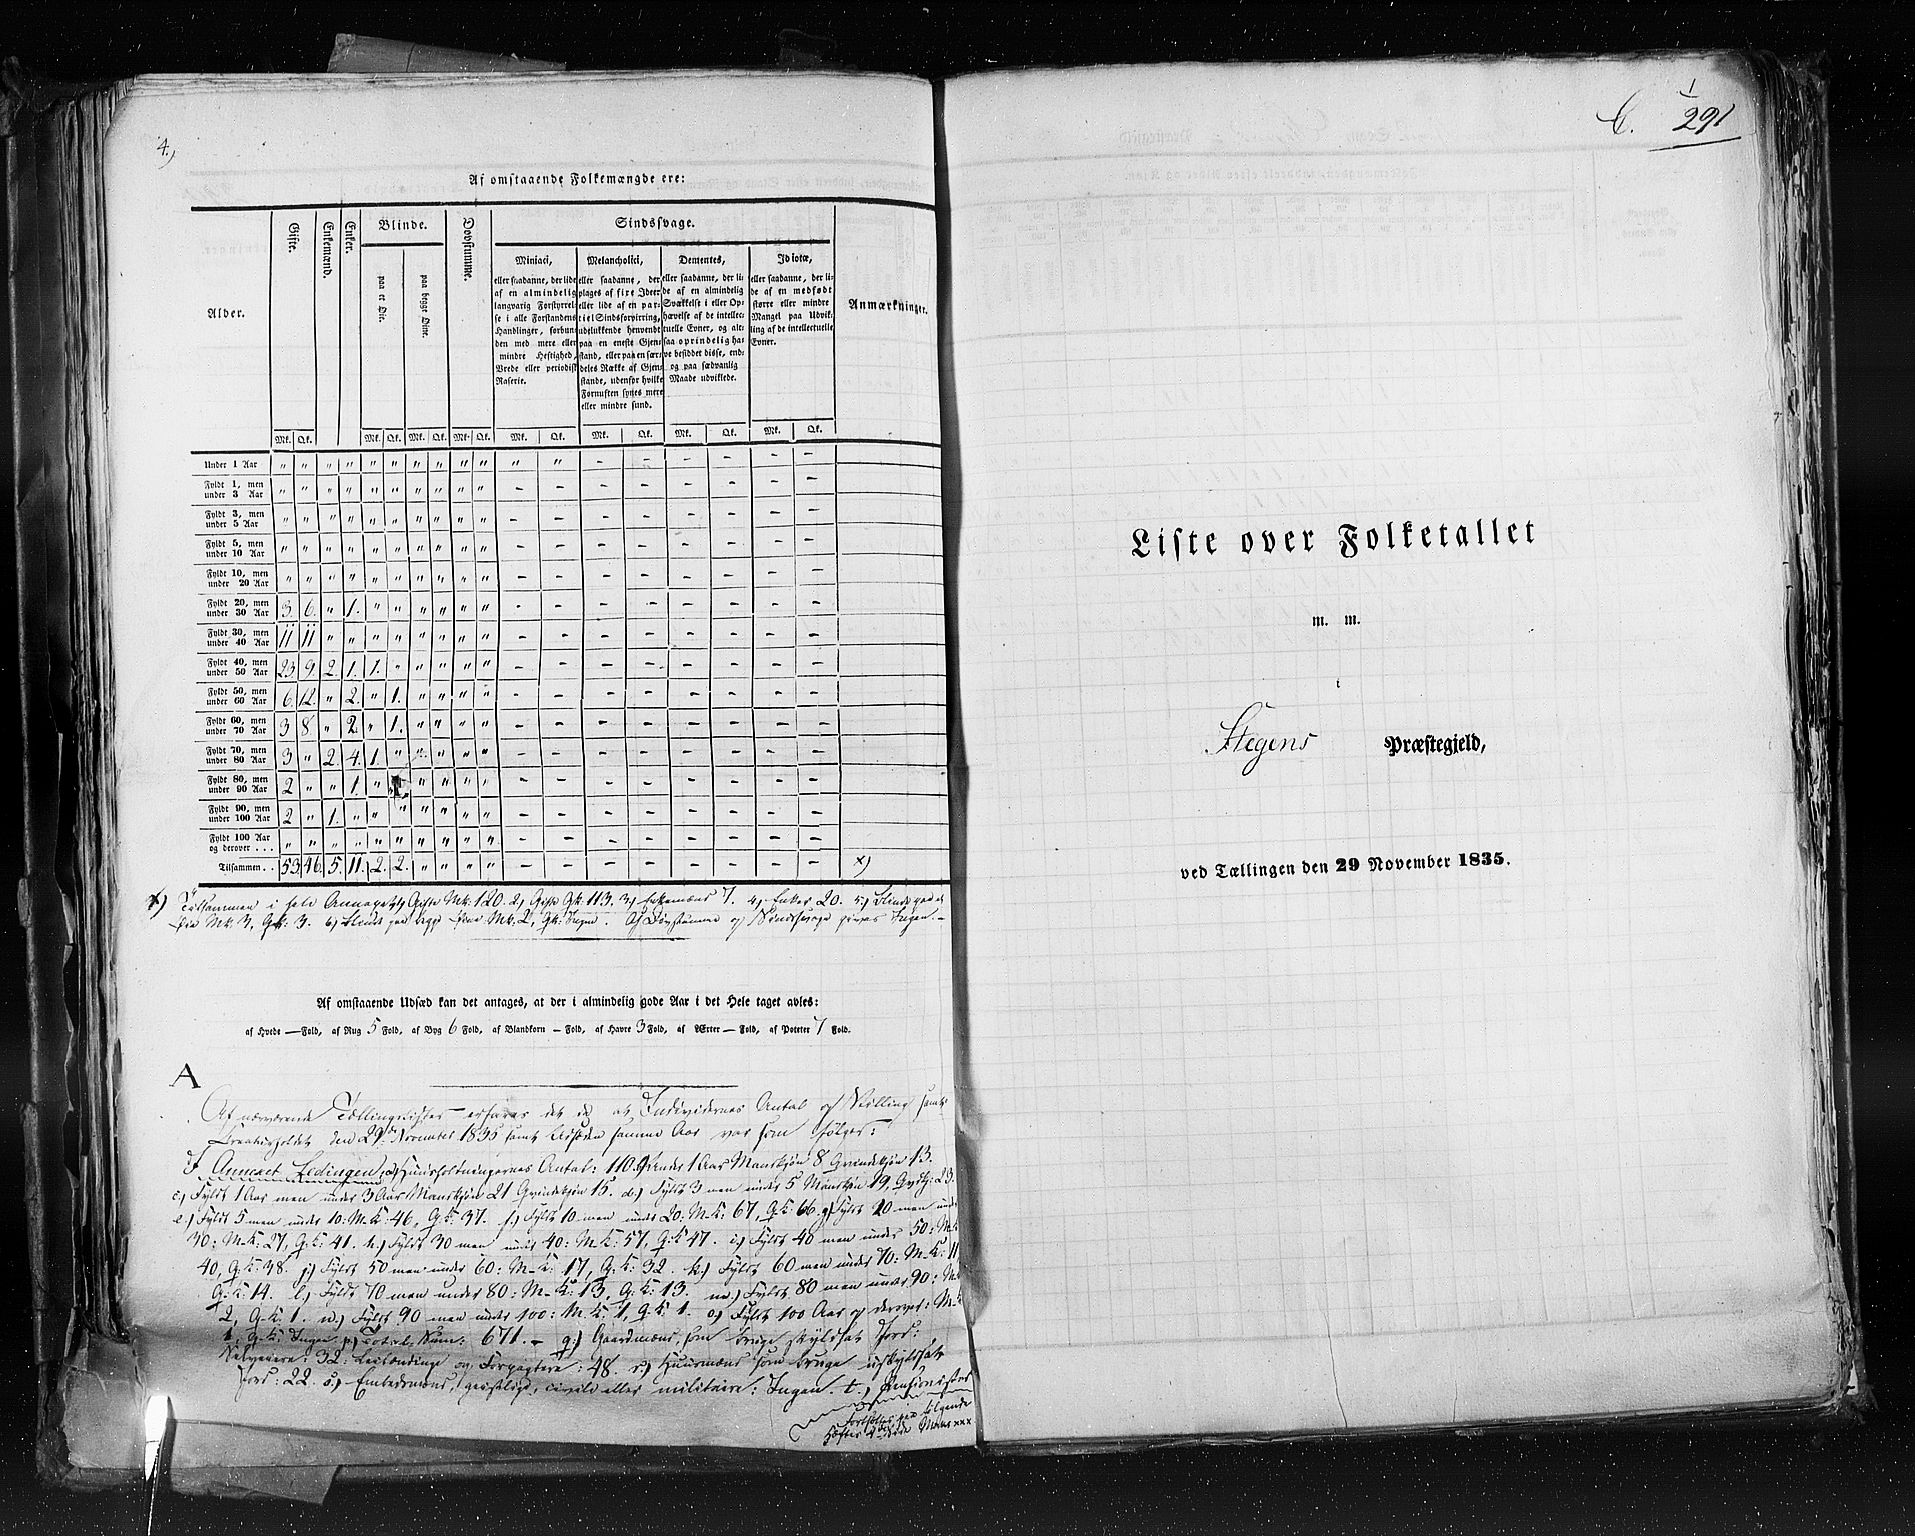 4.)
Af omstaaende Folkemængde ere:
Alder. Gifte. Enkemænd. Enker. Blinde. Døvstumme. Sindssvage. Anmærkninger.
paa et Øie. paa begge Øine.
Miniaci,
eller saadanne, der lide
af en almindelig
langvarig Forstyrrel-
se i alle Forstandens
Handlinger, forbun-
den med mere eller
mindre Heftighed,
Vrede eller periodisk
Raserie.
Melancholici,
eller saadanne, der
plages af fixe Ideer
eller lide af en par-
tiel Sindsforvirring,
udelukkende henvendt
paa en eneste Gjen-
stand, eller paa en sær-
deles Række af Gjen-
stande, udenfor hvilke
Fornuften synes mere
eller mindre sund.
Dementes,
eller saadanne, der li-
de af en almindelig
Svækkelse i eller Op-
hævelse af de intellec-
tuelle Evner, og alt-
saa oprindelig ha-
ve besiddet disse, end-
og paa sædvanlig
Maade udviklede.
Idiotæ,
eller saadanne, der li-
de af en medfødt
større eller mindre
Mangel paa Udvik-
ling af de intellectuelle
Evner.
Mk. Qk. Mk. Qk. Mk. Qk. Mk. Qk. Mk. Qk. Mk. Qk. Mk. Qk. Mk. Qk.
Under 1 Aar " " " " " " " " " " " " – – – – – –
Fyldt 1, men under 3 Aar " " " " " " " " " " – – – – – – – –
Fyldt 3, men under 5 Aar " " " " " " " " " " – – – – – – – –
Fyldt 5, men under 10 Aar " " " " " " " " " " – – – – – – – –
Fyldt 10, men under 20 Aar " " " " " " " " " " – – – – – – – –
Fyldt 20, men under 30 Aar 3. 6. " 1. " " " " " " – – – – – – – –
Fyldt 30, men under 40 Aar 11 11 " " " " " " " " – – – – – – – –
Fyldt 40, men under 50 Aar 23. 9. 2. 1. 1. " " " " " – – – – – – – –
Fyldt 50, men under 60 Aar 6. 12. " 2. " 1. " " " " – – – – – – – –
Fyldt 60, men under 70 Aar 3 8 " 2. " 1. " " " " – – – – – – – –
Fyldt 70, men under 80 Aar 3 " 2. 4. 1. " " " " " – – – – – – – –
Fyldt 80, men under 90 Aar 2 " " 1. " " " " " – – – – – – – –
Fyldt 90, men under 100 Aar 2 " 1. " " " " " " " – – – – – – – –
Fyldt 100 Aar og derover . . . " " " " " " " " " " – – – – – – – –
Tilsammen . . 53. 46. 5. 11. 2. 2. " " " " – – – – – – – – x)
x) Tilsammen i hele Gifte Mk. 120. 2) Gifte Qk. 113. 3) Enkemænd 7. 4) Enker 20. 5) Blinde paa et
Øie Mk. 3, Qk. 3. 6) Blinde paa begge Øine Mk. 2, Qk. Ingen. Af Døvstumme og Sindssvage gives Ingen. –
Af omstaaende Udsæd kan det antages, at der i almindelig gode Aar i det Hele taget avles:
af Hvede — Fold, af Rug 5 Fold, af Byg 6 Fold, af Blandkorn – Fold, af Havre 3 Fold, af Ærter — Fold, af Poteter 7 Fold.
A
Af nærværende Tællingslister erfares det at Individernes Antal og Stilling samt
Creaturholdet den 29de November 1835 samt Udsæden samme Aar var som følger:
I Annexet Ledingen, a) Huusholdningernes Antal: 110. b) Under 1 Aar Mandkjøn 8 Qvindekjøn 13.
c) Fyldt 1 Aar men under 3 Aar Mandkjøn 21 Qvindekjøn 15. d.) Fyldt 3 men under 5 Mandkjøn 19, Qvkj: 23.
e.) Fyldt 5 men under 10: M-K: 46, Q: K: 37. f.) Fyldt 10 men under 20: M-K: 67, Q: K: 66. g) Fyldt 20 men under
30: M-K: 27, Q: K: 41. h.) Fyldt 30 men under 40: M-K: 57, Q: K 47. i.) Fyldt 40 men under 50: M-K
40, Q: K: 38. j) Fyldt 50 men under 60: M-K: 17, Q: K: 32. k.) Fyldt 60 men under 70: M-K: 11
Q: K: 14. l.) Fyldt 70 men under 80: M-K: 13, Q: K: 13. m.) Fyldt 80 men under 90: M-K
2, Q-K 1. n.) Fyldt 90 men under 100: M: K: 1, Q: K 1. o) Fyldt 100 Aar og derover: M-K
1, Q-K: Ingen. p) Total Sum: 671. – q.) Gaardmænd, som bruge skyldsat Jord:
Selveiere: 32: Leilændinge og Forpagtere: 48. r.) Huusmænd som bruge uskyldsat
Jord: 22. s.) Embedsmænd, geistlige, civile eller militaire: Ingen. t.) Pensionister
Fortsættes paa følgende
Hæftes 4de Side Mærke xxx
C. 1
291
Liste over Folketallet
m. m.
i
Stegens Præstegjeld,
ved Tællingen den 29 November 1835.